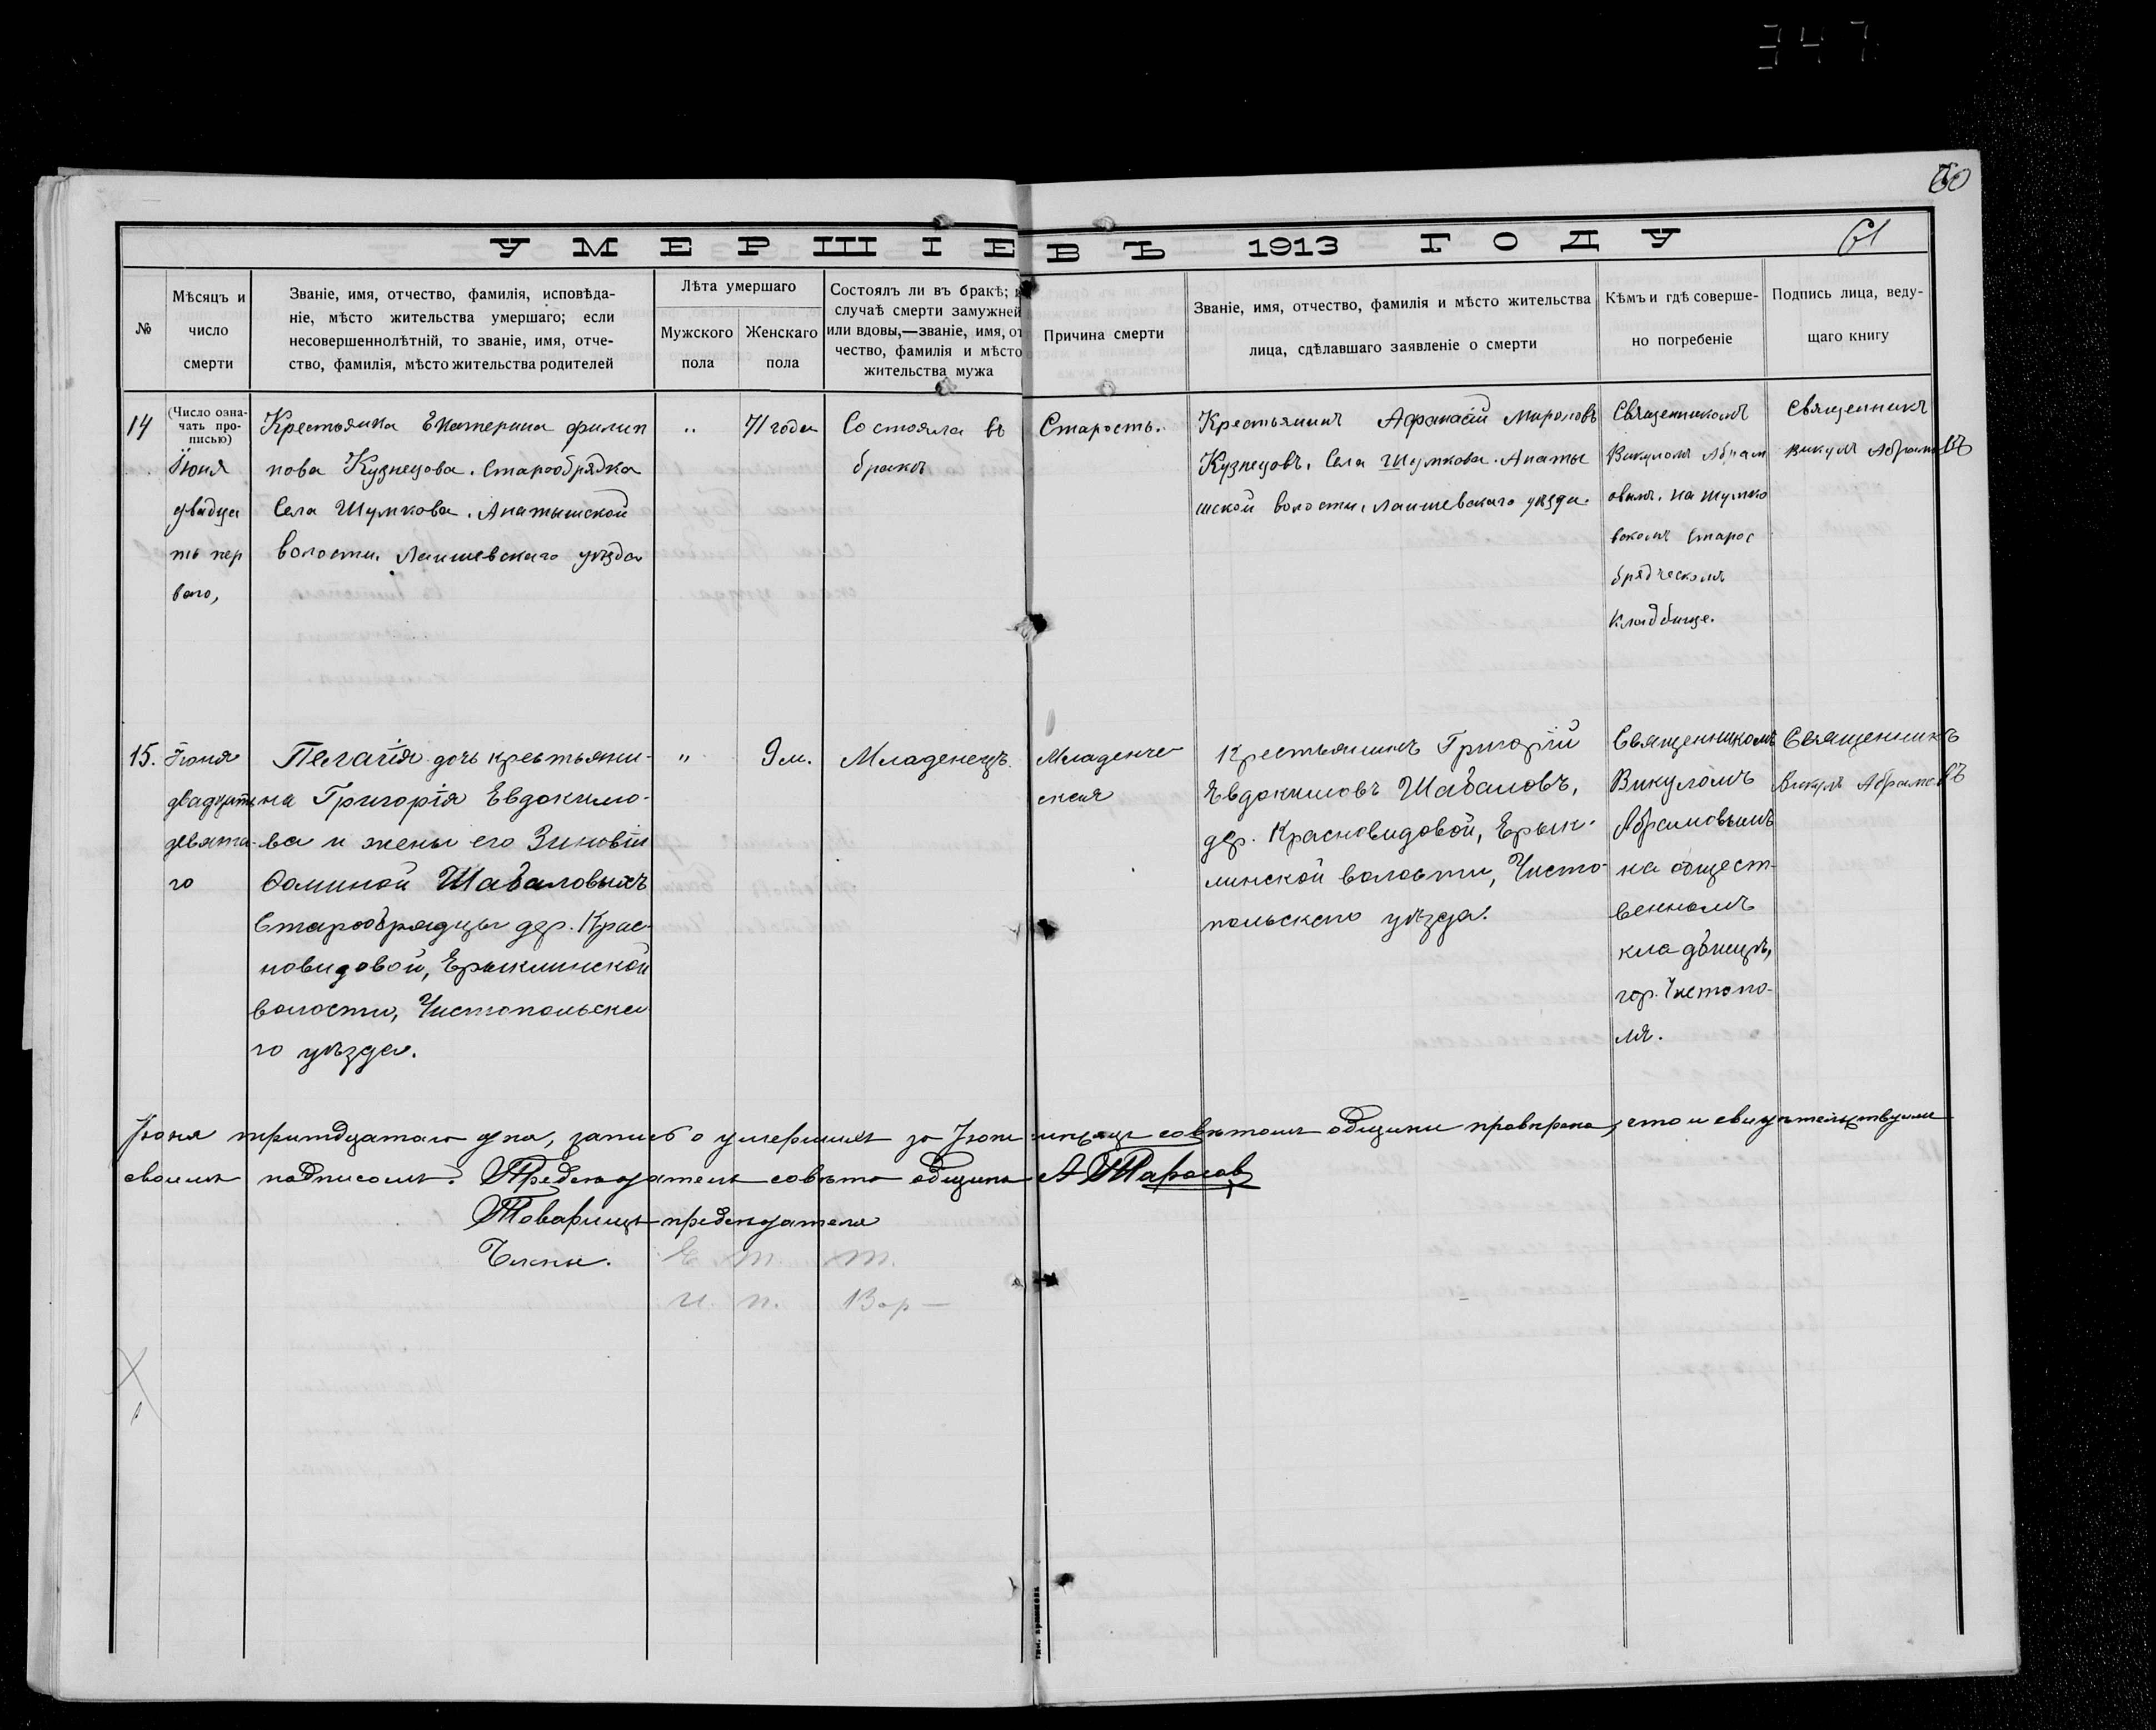 347
60
61
УМЕРШІЕ ВЪ 1913 ГОДУ
№
Мѣсяцъ и
число
смерти
Званіе, имя, отчество, фамилія, исповѣда-
ніе, мѣсто жительства умершаго; если
несовершеннолѣтній, то званіе, имя, отче-
ство, фамилія, мѣсто жительства родителей
Лѣта умершаго
Мужского
пола
Женскаго
пола
Состоялъ ли въ бракѣ;
случаѣ смерти замужней
или вдовы,—званіе, имя, от
чество, фамилія и мѣсто
жительства мужа
Причина смерти
Званіе, имя, отчество, фамилія и мѣсто жительства
лица, сдѣлавшаго заявленіе о смерти
Кѣмъ и гдѣ соверше-
но погребеніе
Подпись лица, веду-
щаго книгу
14
(Число озна-
чать про-
писью)
Іюня
двадца
ть пер
ваго,
Крестьянка Екатерина филип
пова Кузнецова. Старообрядка
Села Шумкова. Анатышской
волости Лаишевскаго уѣзда
"
71 года
Состояла въ
бракѣ
Старость.
Крестьянинъ Афанасій Мироновъ
Кузнецовъ. Села Шумкова. Анаты
шской волости, Лаишевскаго уѣзда
Священникомъ
Викуломъ Абрам
овымъ. на шумко
вскомъ Старо
брядческомъ
кладбище.
Священникъ
Викулъ Абрамовъ
15.
Іюня
двадцать
девята-
го
Пелагія дочь крестьяни-
на Григорія Евдокимо-
ва и жены его Зиновіи
Фоминой Шабаловыхъ
Старообрядцы дер. Крас-
новидовой, Ерыклинской
волости, Чистопольска
го уѣзда.
"
9 м.
Младенецъ.
Младенче-
ская
Крестьянинъ Григорій
Евдокимовъ Шабаловъ,
дер. Красновидовой, Ерык-
линской волости, Чисто-
польскаго уѣзда.
Священникомъ
Викуломъ
Абрамовымъ
на общест-
венномъ
кладбищѣ,
гор. Чистопо-
ля.
Священникъ
Викулъ Абрамовъ
Іюня тритдцатаго дня, запись о умершихъ за Іюнь мѣсяцъ совѣтомъ общины провѣрена, что и свидѣтельствуемъ
своимъ подписомъ. Предсѣдатель совѣта общины А Тарасов
Товарищъ предсѣдателя
Члены.
тип. ершокова